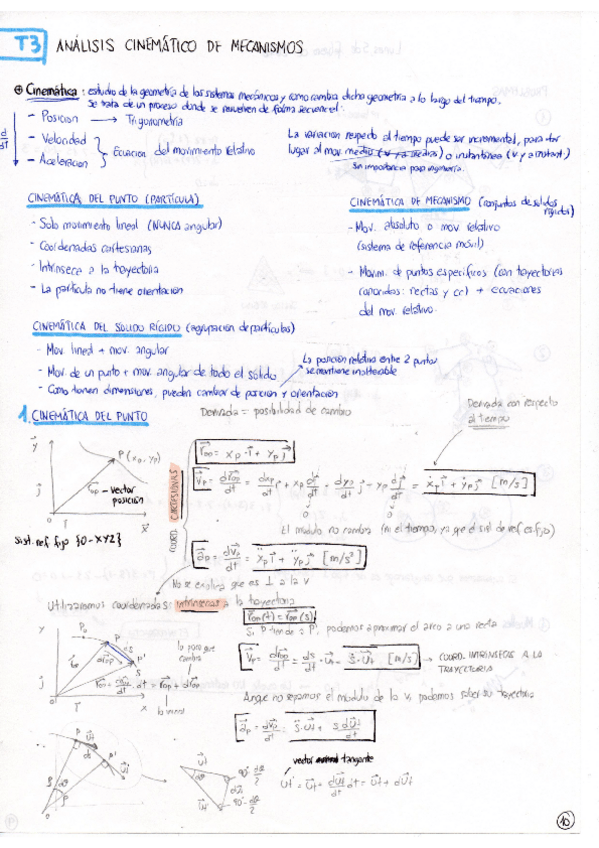 T3 ANÁLISIS CINEMÁTICO DE MECANISMOS
⊕ Cinemática: estudio de la geometría de los sistemas mecánicos y como cambia dicha geometría a lo largo del tiempo.
Se trata de un proceso donde se resuelven de forma secuencial:
- Posicion → Trigonometría
- Velocidad
- Aceleracion
} Ecuacion del movimiento relativo
d/dt
La variacion respecto al tiempo puede ser incremental, para dar
lugar al mov. medio (v y a medias) o instantánea (v y a instant)
Sin importancia para ingeniería.
CINEMÁTICA DEL PUNTO (PARTÍCULA)
- Solo movimiento lineal (NUNCA angular)
- Coordenadas cartesianas
- Intrínseca a la trayectoria
- La partícula no tiene orientacion
CINEMÁTICA DE MECANISMO (conjuntos de solidos rígidos)
- Mov. absoluto o mov relativo
(sistema de referencia móvil)
- Movim. de puntos específicos (con trayectorias
conocidas: rectas y cc) + ecuaciones
del mov. relativo.
CINEMÁTICA DEL SOLIDO RÍGIDO (agrupacion de partículas)
- Mov. lineal + mov. angular
- Mov. de un punto + mov. angular de todo el sólido
- Como tienen dimensiones, pueden cambiar de posicion y orientación
La posición relativa entre 2 puntos
se mantiene inalterable
1. CINEMÁTICA DEL PUNTO
Derivada = posibilidad de cambio
Derivada con respecto
al tiempo
P (xp, yp)
vector
posición
sist. ref fijo {O-XYZ}
COORD. CARTESIANAS
r⃗op = xp·i⃗ + yp j⃗
v⃗p = dr⃗op/dt = dxp/dt i⃗ + xp di⃗/dt + dyp/dt j⃗ + yp dj⃗/dt = ẋp i⃗ + ẏp j⃗ [m/s]
El módulo no cambia (ni el tiempo, ya que el sist de ref es fijo)
a⃗p = dv⃗p/dt = ẍp i⃗ + ÿp j⃗ [m/s²]
No se explica que es ⊥ a la v
Utilizaremos coordenadas intrínsecas a la trayectoria
r⃗op(t) = r⃗op(s)
Si P tiende a P', podemos aproximar el arco a una recta
lo poco que
cambia
lo inicial
v⃗p = dr⃗op/dt = ds/dt · u⃗t = ṡ·u⃗t [m/s] → COORD. INTRINSECAS A LA
TRAYECTORIA
Aunque no sepamos el módulo de la v, podemos saber su trayectoria
a⃗p = dv⃗p/dt = s̈·u⃗t + ṡ du⃗t/dt
vector tangente
u⃗t' = u⃗t + du⃗t/dt dt = u⃗t + du⃗t
90º - dθ/2
90º - dθ/2
10